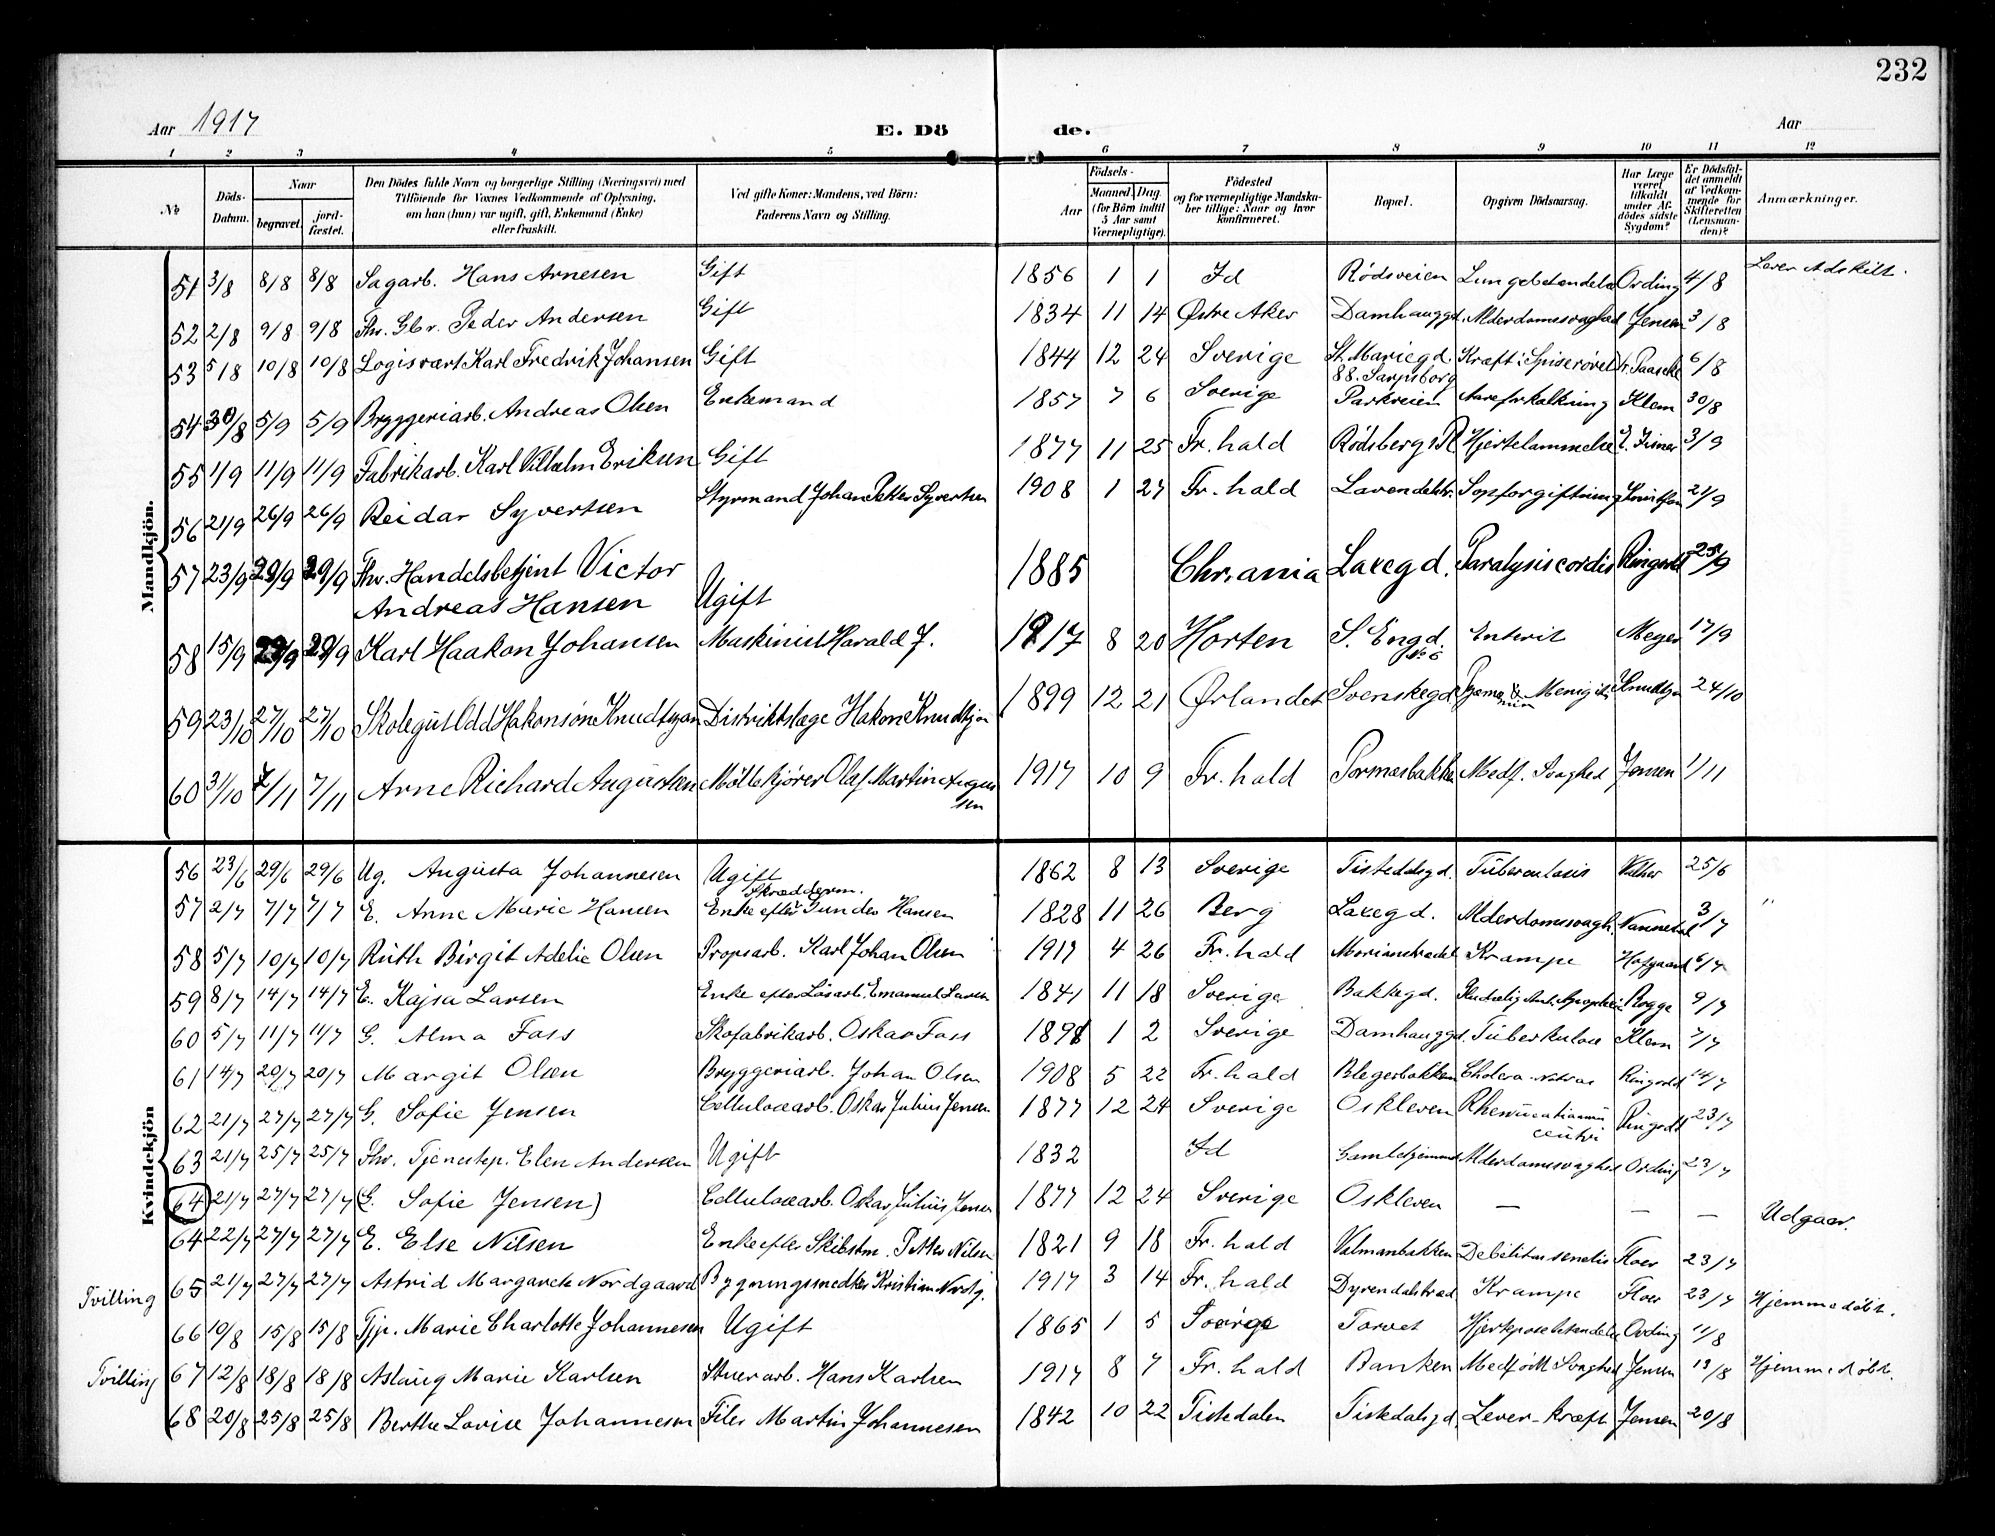 232
Aar 1917 E. Dö de. Aar
1 2 3 4 5 6 7 8 9 10 11 12
No Döds-Datum. Naar begravet. jord-fæstet. Den Dödes fulde Navn og borgerlige Stilling (Næringsvei) med Tilföiende for Voxnes Vedkommende af Oplysning, om han (hun) var ugift, gift, Enkemand (Enke) eller fraskilt. Ved gifte Koner: Mandens, ved Börn: Faderens Navn og Stilling. Födsels- Aar Maaned. Dag. (for Börn indtil 5 Aar samt Værnepligtige). Födested og for værnepligtige Mandskaber tillige: Naar og hvor konfirmeret. Bopæl. Opgiven Dödsaarsag. Har Læge været tilkaldt under Afdödes sidste Sygdom? Er Dödsfaldet anmeldt af Vedkommende for Skifteretten (Lensmanden)? Anmærkninger.
Mandkjön.
51 3/8 8/8 8/8 Sagarb. Hans Arnesen Gift 1856 1 1 Id Rödsveien Lungebetændelse Ording 4/8 Lever Adskilt.
52 2/8 9/8 9/8 Fhv. Gbr. Peder Andersen Gift 1834 11 14 Østre Aker Damhauggd. Alderdomssvaghed Jensen 3/8
53 5/8 10/8 10/8 Logisvært Karl Fredrik Johansen Gift 1844 12 24 Sverige St. Mariegd. 88. Sarpsborg Kræft i Spiserøret Fr. Paasche 6/8
54 30/8 5/9 5/9 Bryggeriarb. Andreas Olsen Enkemand 1857 7 6 Sverige Parkveien Aareforkalkning Klem 30/8
55 1/9 11/9 11/9 Fabrikarb. Karl Vilhelm Eriksen Gift 1877 11 25 Fr. hald Rødsberg Hjertelammelse 3/9
56 21/9 26/9 26/9 Reidar Syvertsen Styrmand Johan Petter Syvertsen 1908 1 27 Fr. hald Lavendelstr. Sopforgiftning 21/9
57 23/9 29/9 29/9 Fhv. Handelsbetjent Victor Andreas Hansen Ugift 1885 Chr.ania Laxegd. Paralysis cordis Ringsdal 25/9
58 15/9 29/9 29/9 Karl Haakon Johansen Maskinist Harald J. 1917 8 20 Horten S. Engd. No 6 Enterit Meyer 17/9
59 23/10 27/10 27/10 Skolegut Odd Hakonsøn Knudtzon Distriktslæge Hakon Knudtzon 1899 12 21 Ørlandet Svenskegd. Menigitis Knudtzon 24/10
60 31/10 7/11 7/11 Arne Richard Augustsen Möllekjörer Olaf Martin Augustsen 1917 10 9 Fr. hald Pormesbakken Medf. Svaghed Jensen 1/11
Kvindekjön
56 23/6 29/6 29/6 Ug. Augusta Johannesen Ugift 1862 8 13 Sverige Tistedalsgd. Tuberculosis Vather 25/6
57 2/7 7/7 7/7 E. Anne Marie Hansen Enke efter Skrædderm. Gunder Hansen 1828 11 26 Berg Laxegd. Alderdomssvagh. Vannebol 3/7 "
58 5/7 10/7 10/7 Ruth Birgit Adelie Olsen Propsarb. Karl Johan Olsen 1917 4 26 Fr. hald Marianstrædet Krampe Hofgaard 6/7
59 8/7 14/7 14/7 E. Kajsa Larsen Enke efter Løsarb. Emanuel Larsen 1841 11 18 Sverige Bakkegd. Rogge 9/7
60 5/7 11/7 11/7 G. Alma Foss Skofabrikarb. Oskar Foss 1891 1 2 Sverige Damhauggd. Tuberkulose Klem 7/7
61 14/7 20/7 20/7 Margit Olsen Bryggeriarb. Johan Olsen 1908 5 22 Fr. hald Blegerbakken Cholera Nostras Ringsdal 14/7
62 21/7 27/7 27/7 G. Sofie Jensen Cellulosearb. Oskar Julius Jensen 1877 12 24 Sverige Oskleven Rheumatismus Ringsdal 23/7
63 21/7 25/7 25/7 Fhv. Tjenestep. Elen Andersen Ugift 1832 Id Gamlehjemmet Alderdomssvaghed Ording 23/7
64 21/7 27/7 27/7 (G. Sofie Jensen) Cellulosearb. Oskar Julius Jensen 1877 12 24 Sverige Oskleven — — — Udgaar.
64 22/7 27/7 27/7 E. Else Nilsen Enke efter Skibstm. Petter Nilsen 1821 9 18 Fr. hald Valmanbakken Debilitas senilis Floer 23/7
Tvilling 65 21/7 27/7 27/7 Astrid Margarete Nordgaard Bygningssnedker Kristian Nordg. 1917 3 14 Fr. hald Dyrendalstræd Krampe Floer 23/7 Hjemmedöbt.
66 10/8 15/8 15/8 Tjp. Marie Charlotte Johannesen Ugift 1865 1 5 Sverige Torvet Hjerteposebetændelse Ording 11/8
Tvilling 67 12/8 18/8 18/8 Aslaug Marie Karlsen Stuerarb. Hans Karlsen 1917 8 7 Fr. hald Banken Medfødt Svaghed Jensen 13/8 Hjemmedöbt.
68 20/8 25/8 25/8 Berthe Lovise Johannesen Filer Martin Johannesen 1842 10 22 Tistedalen Tistedalsgd Lever-kræft Jensen 20/8